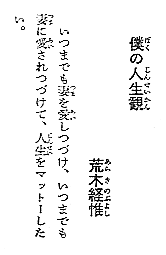 僕の人生観
荒木経惟
いつまでも妻を愛しつづけ、いつまでも
妻に愛されつづけて、人生をマットーした
い。